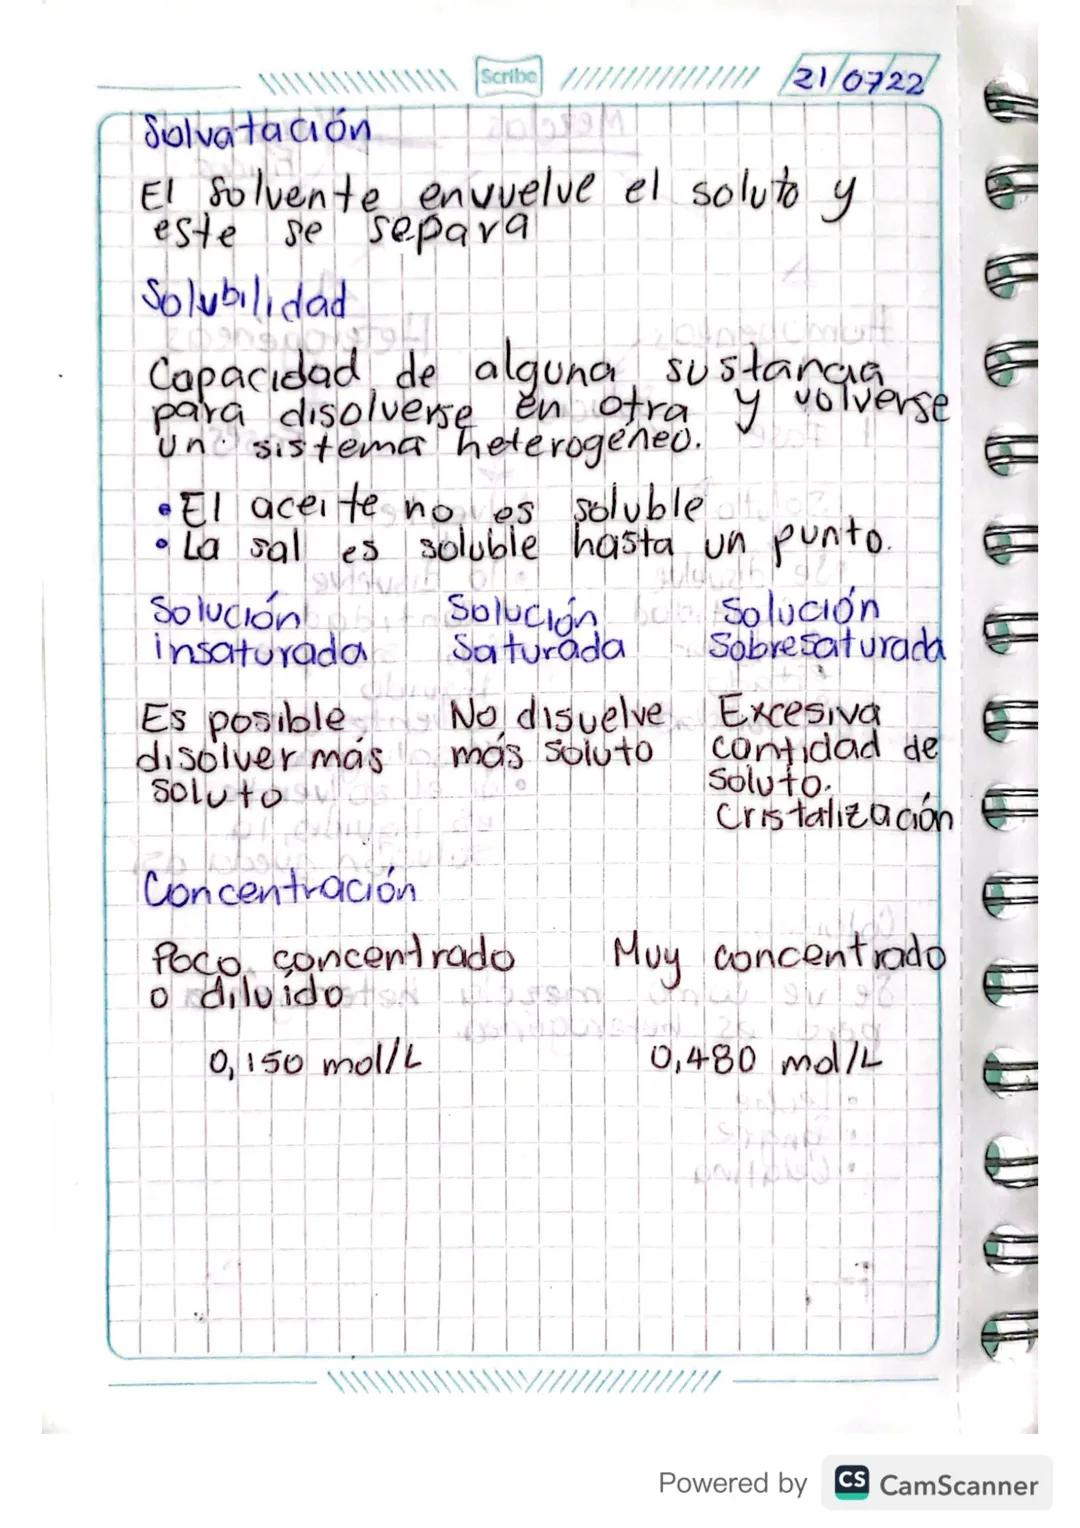 Scribe 21/07/22
Solvatación
El solvente envuelve el soluto y
este se separa
Solubilidad
Capacidad de alguna sustancia
para disolverse en otra y volverse
un sistema heterogéneo.
• El aceite no es soluble
• La sal es soluble hasta un punto.
Solución Solución Solución
insaturada Saturada Sobresaturada
Es posible No disuelve Excesiva
disolver más más soluto cantidad de
soluto soluto.
Cristalización
Concentración
Poco concentrado Muy concentrado
o diluído
0,150 mol/L 0,480 mol/L
Powered by CS CamScanner